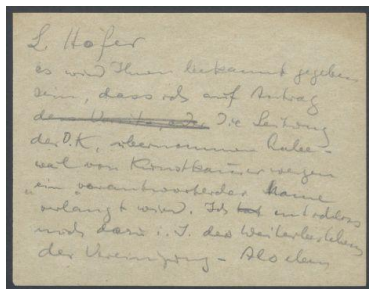 L Hofer
es wird Ihnen bekannt gegeben
sein, dass ich auf Antrag
die Leitung
der D.K. übernommen habe -
weil von Kunstkammer wegen
"ein verantwortender Name
verlangt wird. Ich entschloss
mich dazu i. I. des Weiterbestehens
der Vereinigung - Also eben